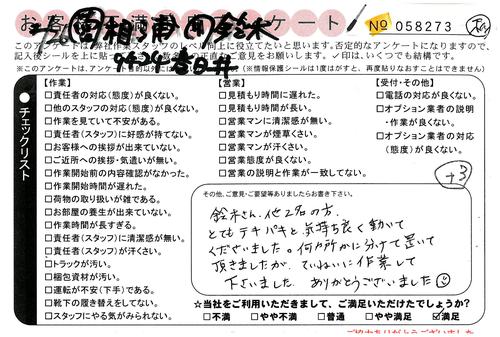 お客様満足度アンケート! No 058273
このアンケートは弊社作業スタッフのレベル向上に役立てたいと思います。否定的なアンケートになりますので、
記入後シールを上に貼って
ご意見をお願いします。✓印は、いくつでも結構です。
(※情報保護シールは1度はがすと、再度貼りなおすことはできません)
チェックリスト
【作業】
□責任者の対応(態度)が良くない。
□他のスタッフの対応(態度)が良くない。
□作業を見ていて不安がある。
□責任者(スタッフ)に好感が持てない。
□お客様への挨拶が出来ていない。
□ご近所への挨拶・気遣いが無い。
□作業開始前の内容確認がなかった。
□作業開始時間が遅れた。
□荷物の取り扱いが雑である。
□お部屋の養生が出来ていない。
□作業時間が長すぎる。
□責任者(スタッフ)に清潔感が無い。
□責任者(スタッフ)が汗くさい。
□トラックが汚い。
□梱包資材が汚い。
□運転が不安(下手)である。
□靴下の履き替えをしてない。
□スタッフにやる気がみられない。
【営業】
□見積もり時間に遅れた。
□見積もり時間が長い。
□営業マンに清潔感が無い。
□営業マンが煙草くさい。
□営業マンが汗くさい。
□営業態度が良くない。
□営業の説明と作業が一致してない。
【受付・その他】
□電話の対応が良くない。
□オプション業者の説明
・作業が良くない。
□オプション業者の対応
(態度)が良くない。
+3
その他、ご意見・ご要望等ありましたらお書き下さい。
鈴木さん、他2名の方、
とてもテキパキと気持ち良く動いて
くださいました。何ヶ所かに分けて置いて
頂きましたが、ていねいに作業して
下さいました。ありがとうございました
☆当社をご利用いただきまして、ご満足いただけたでしょうか?
□不満 □やや不満 □普通 □やや満足 ☑満足
ご協力ありがとうございました